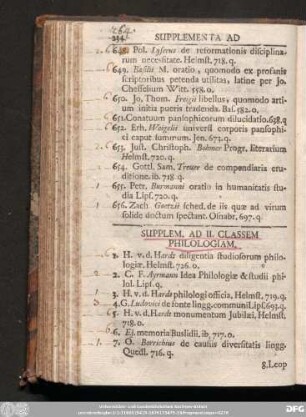 264
234 SUPPLEMENTA AD
648. Pol. Lyserus de reformationis disciplina-
rum necessitate. Helmst. 718. q.
649. Basilii M. oratio, quomodo ex profanis
scriptoribus petenda utilitas, latine per Jo.
Chesselium Witt. 558. o.
650. Jo. Thom. Freigii libellus, quomodo artium
initia pueris tradenda. Bas. 582. o.
651. Conatuum pansophicorum dilucidatio. 638. q
652. Erh. Weigelii universi corporis pansophi-
ci caput summum. Jen. 673. q.
653. Just. Christoph. Bohmer Progr. literarium
Helmst. 720. q.
654. Gottl. Sam. Treuer de compendiaria eru-
ditione. ib. 718. q.
655. Petr. Burmanni oratio in humanitatis stu-
dia Lips. 720. q.
656. Zach. Goezii sched. de iis quæ ad virum
solide doctum spectant. Osnabr. 697. q.
SUPPLEM. AD II. CLASSEM
PHILOLOGIAM.
1. H. v. d. Hardt diligentia studiosorum philo-
logiæ. Helmst. 726. o.
2. G. F. Ayrmann Idea Philologiæ & studii phi-
lol. Lips. q.
3. H. v. d. Hardt philologi officia, Helmst. 719. q.
4. G. Ludovici de fonte lingg. communi Lips 693. q.
5. H. v. d. Hardt monumentum Jubilæi, Helmst.
718. o.
6. Ej. memoria Buslidii, ib. 717. o.
7. O. Borrichius de causis diversitatis lingg.
Quedl. 716. q.
8. Leop